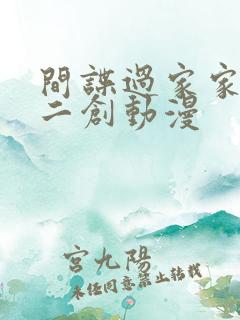 間諜過家家
二創動漫
宮九陽
未經同意禁止轉載